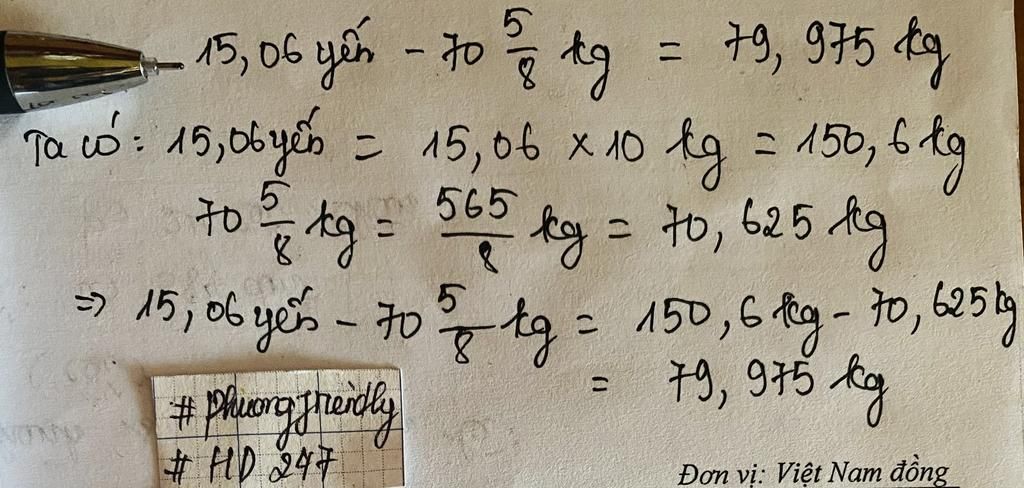 15,06 yến - 70 5/8 kg = 79,975 kg
Ta có: 15,06 yến = 15,06 × 10 kg = 150,6 kg
70 5/8 kg = 565/8 kg = 70,625 kg
⇒ 15,06 yến - 70 5/8 kg = 150,6 kg - 70,625 kg
= 79,975 kg
# phuongfriendly
# HD 247
Đơn vị: Việt Nam đồng